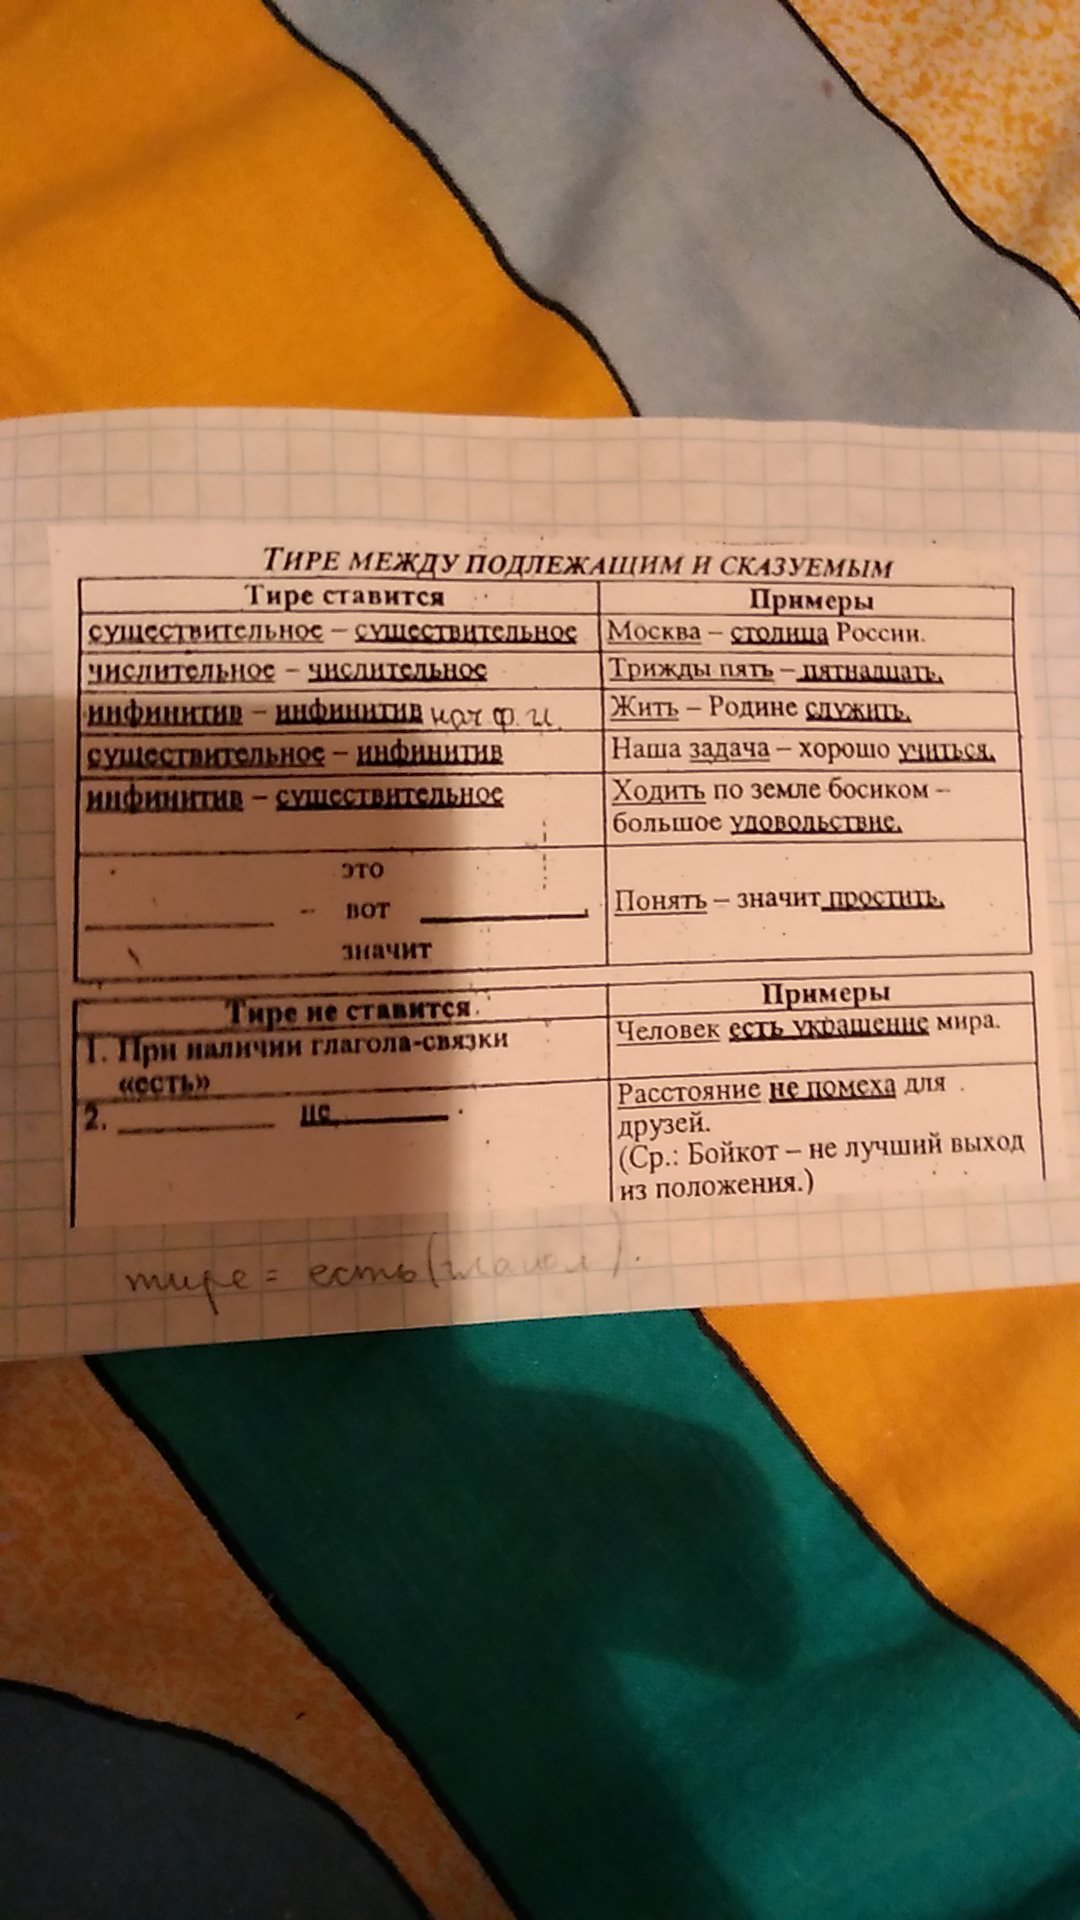 ТИРЕ МЕЖДУ ПОДЛЕЖАЩИМ И СКАЗУЕМЫМ
Тире ставится
Примеры
существительное – существительное
Москва – столица России.
числительное – числительное
Трижды пять – пятнадцать.
инфинитив – инфинитив нач ф. и.
Жить – Родине служить.
существительное – инфинитив
Наша задача – хорошо учиться.
инфинитив – существительное
Ходить по земле босиком –
большое удовольствие.
это
– вот
значит
Понять – значит простить.
Тире не ставится
Примеры
1. При наличии глагола-связки
«есть»
Человек есть украшение мира.
2. ________ не ________
Расстояние не помеха для
друзей.
(Ср.: Бойкот – не лучший выход
из положения.)
тире = есть (глагол).